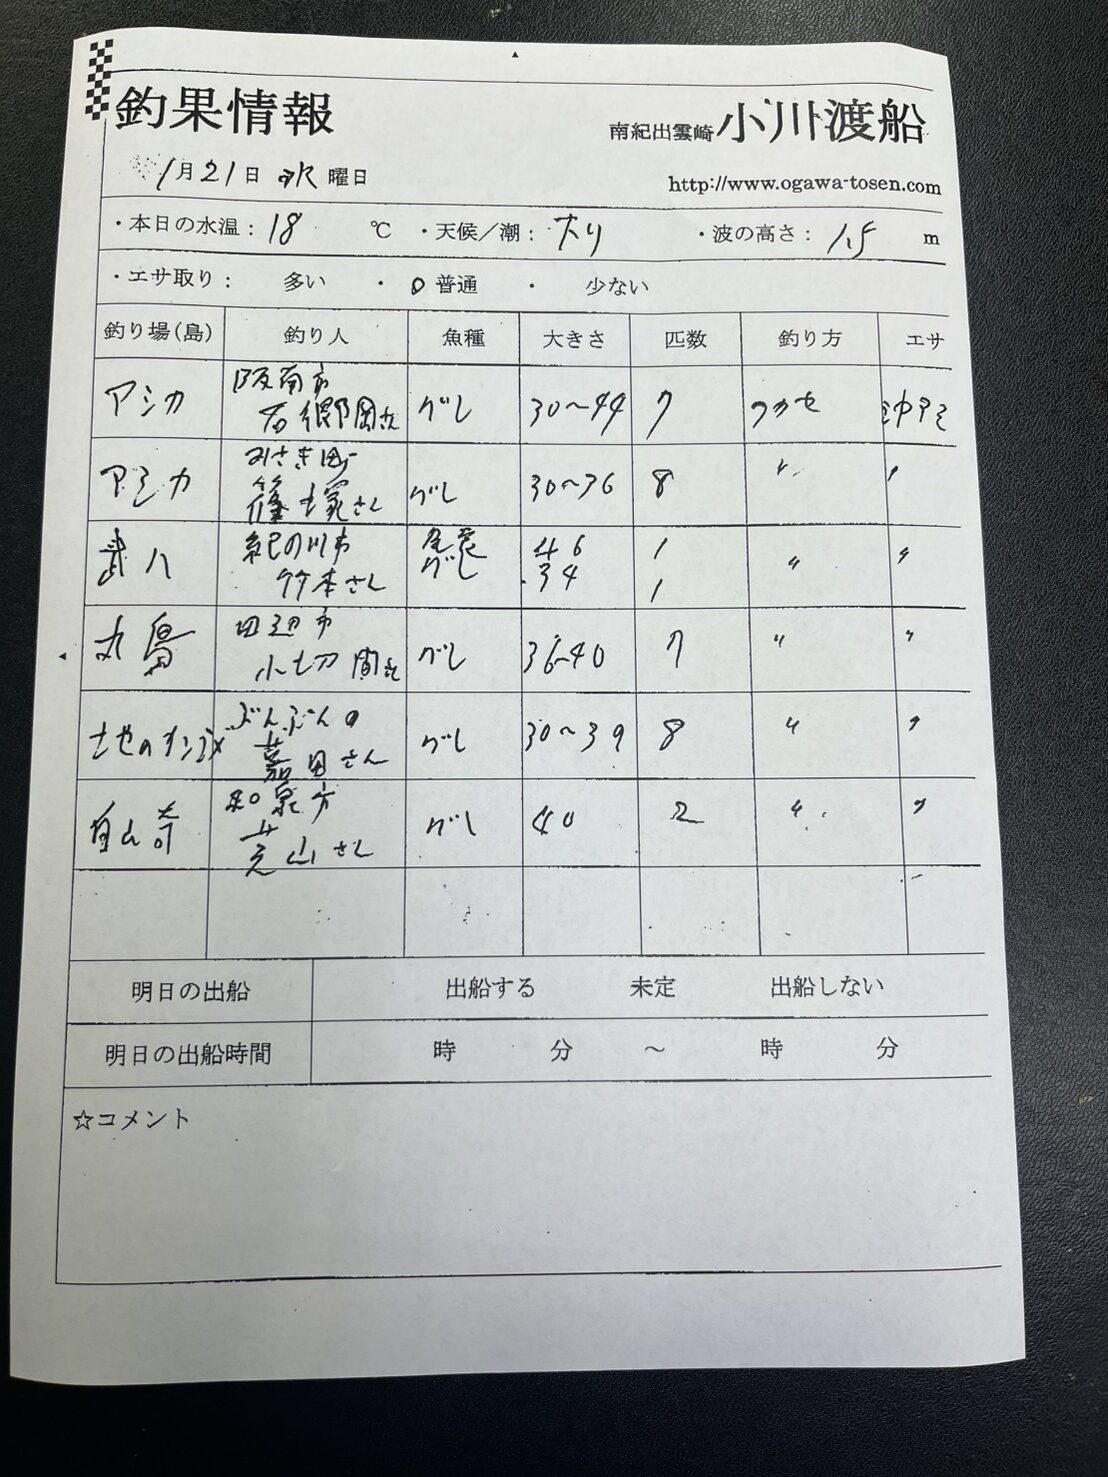 釣果情報
南紀出雲崎 小川渡船
1月21日 水曜日
http://www.ogawa-tosen.com
・本日の水温：18 ℃ ・天候／潮： 大リ ・波の高さ： 1.5 m
・エサ取り： 多い ・ 0 普通 ・ 少ない
釣り場(島) 釣り人 魚種 大きさ 匹数 釣り方 エサ
アシカ 阪南市 石郷岡さん グレ 30〜44 7 フカセ 沖アミ
アシカ みさき町 篠塚さん グレ 30〜36 8 〃 〃
武八 紀の川市 竹本さん 尾長 46 1 〃 〃
グレ 34 1
丸島 田辺市 小切間さん グレ 36〜40 7 〃 〃
地の ぶんぶんの 嘉田さん グレ 30〜39 8 〃 〃
和泉市 芝山さん グレ 40 2 〃 〃
明日の出船 出船する 未定 出船しない
明日の出船時間 時 分 〜 時 分
☆コメント